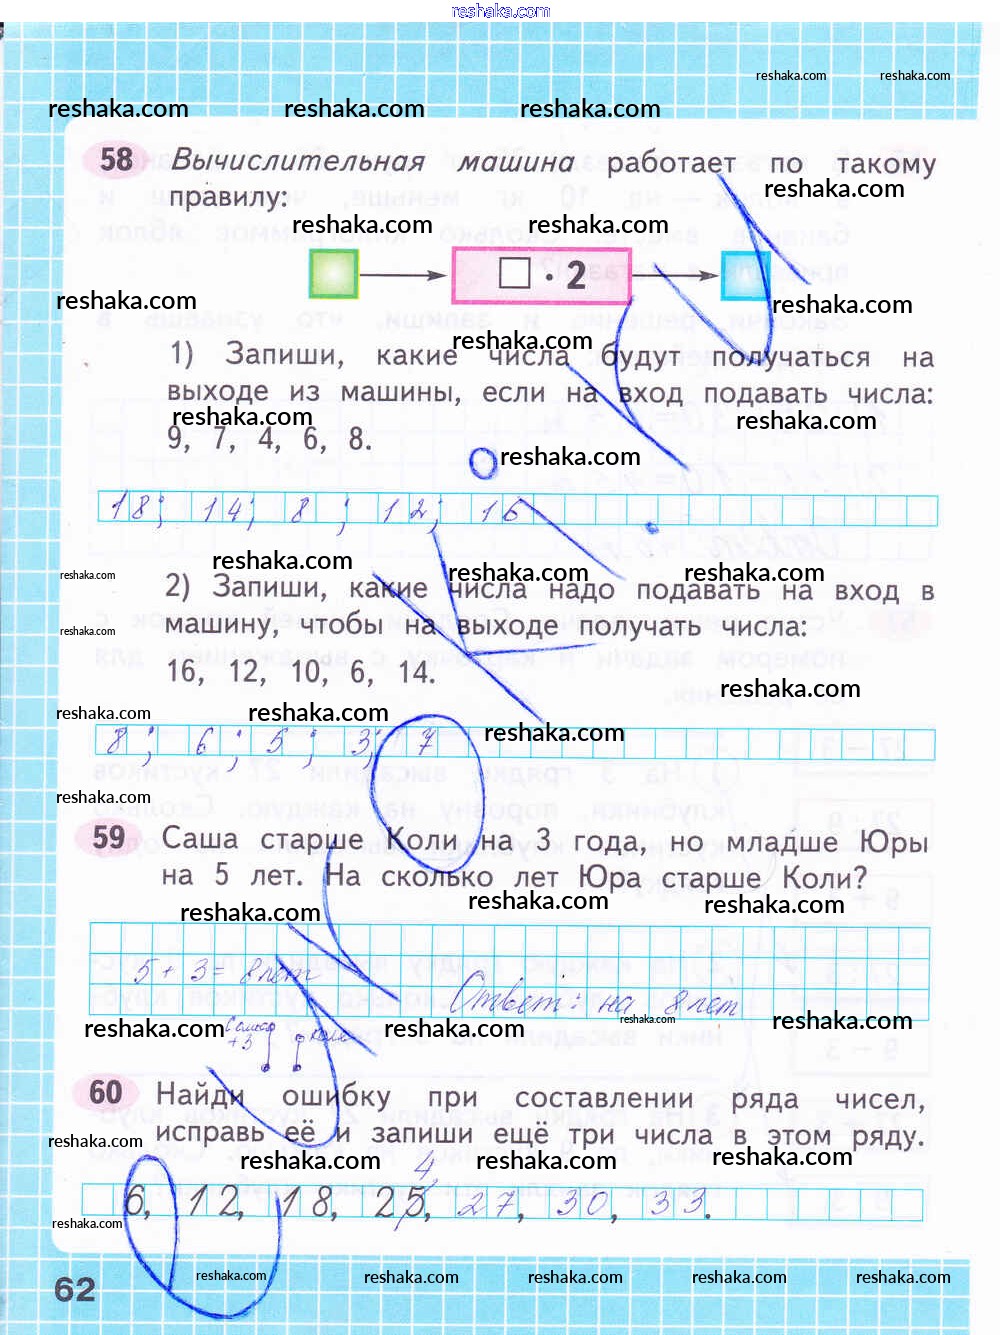 reshaka.com
reshaka.com reshaka.com
reshaka.com reshaka.com reshaka.com
58 Вычислительная машина работает по такому
reshaka.com
правилу:
reshaka.com reshaka.com
□ · 2
reshaka.com reshaka.com
reshaka.com
1) Запиши, какие числа будут получаться на
выходе из машины, если на вход подавать числа:
reshaka.com reshaka.com
9, 7, 4, 6, 8.
reshaka.com
18; 14; 8; 12; 16
reshaka.com reshaka.com reshaka.com
reshaka.com
2) Запиши, какие числа надо подавать на вход в
машину, чтобы на выходе получать числа:
reshaka.com
16, 12, 10, 6, 14.
reshaka.com
reshaka.com reshaka.com
reshaka.com
8; 6; 5; 3; 7
reshaka.com
59 Саша старше Коли на 3 года, но младше Юры
на 5 лет. На сколько лет Юра старше Коли?
reshaka.com reshaka.com reshaka.com
5 + 3 = 8 лет
Ответ: на 8 лет
reshaka.com reshaka.com reshaka.com reshaka.com
+3
60 Найди ошибку при составлении ряда чисел,
исправь её и запиши ещё три числа в этом ряду.
reshaka.com
reshaka.com reshaka.com reshaka.com
4
6, 12, 18, 25, 27, 30, 33.
reshaka.com
62 reshaka.com reshaka.com reshaka.com reshaka.com reshaka.com